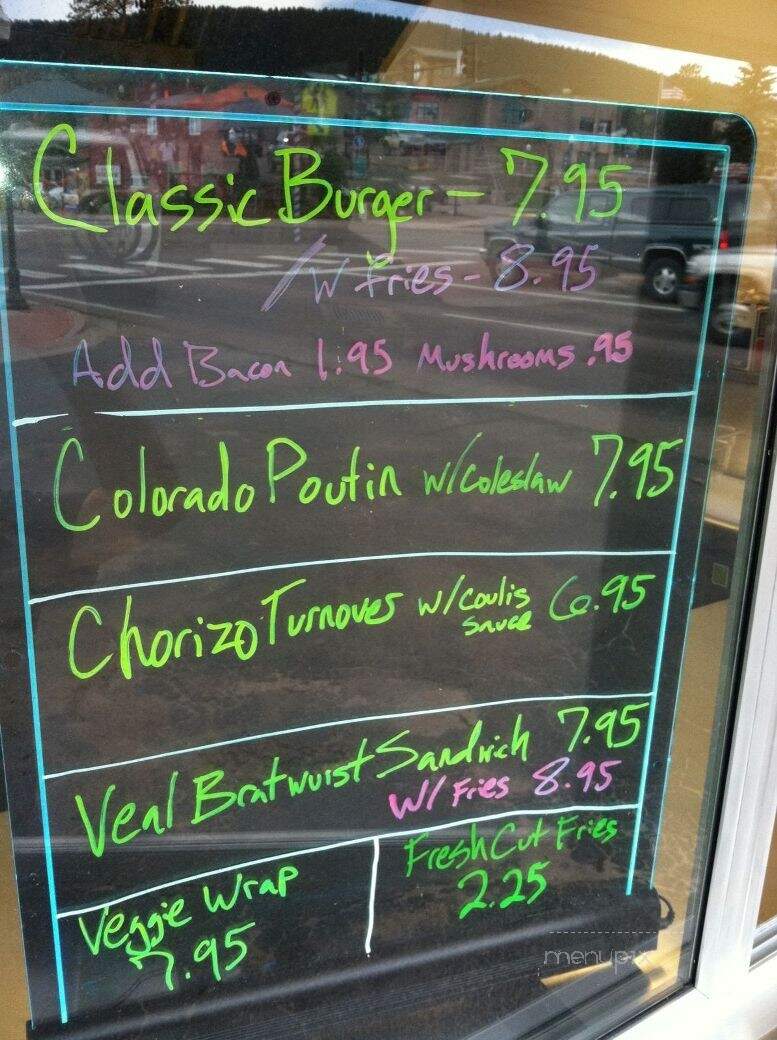 Classic Burger - 7.95
/w fries - 8.95
Add Bacon 1.95 Mushrooms .95
Colorado Poutin w/coleslaw 7.95
Chorizo Turnover w/coulis sauce 6.95
Veal Bratwurst Sandwich 7.95
w/ Fries 8.95
Fresh Cut Fries
2.25
Veggie Wrap
7.95
menupix